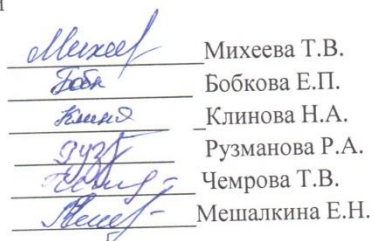 Михеева Т.В.
Бобкова Е.П.
_Клинова Н.А.
Рузманова Р.А.
Чемрова Т.В.
Мешалкина Е.Н.